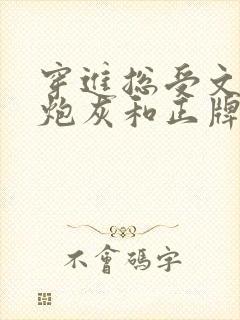 穿進総受文
炮灰和正牌
不會碼字